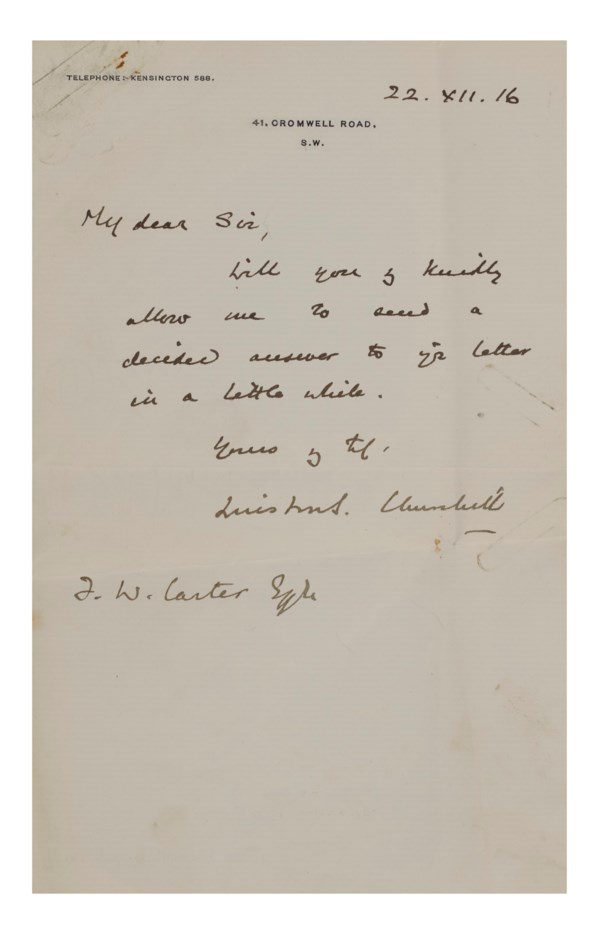 TELEPHONE:-KENSINGTON 588.
22. XII. 16
41, CROMWELL ROAD,
S.W.
My dear Sir,
Will you vy kindly
allow me to send a
decided answer to yr letter
in a little while.
Yours vy tly.
Winston S. Churchill
F. W. Carter Esqre